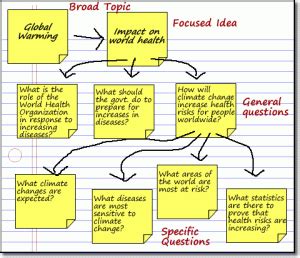 Broad Topic
Global
Warming
Impact on
world health
Focused Idea
What is the
role of the
World Health
Organization
in response to
increasing
diseases?
What should
the govt. do to
prepare for
increases in
diseases?
How will
climate change
increase health
risks for people
worldwide?
General
questions
What climate
changes are
expected?
What diseases are
most sensitive to
climate change?
What areas of
the world are
most at risk?
What statistics
are there to
prove that
health risks are
increasing?
Specific
Questions